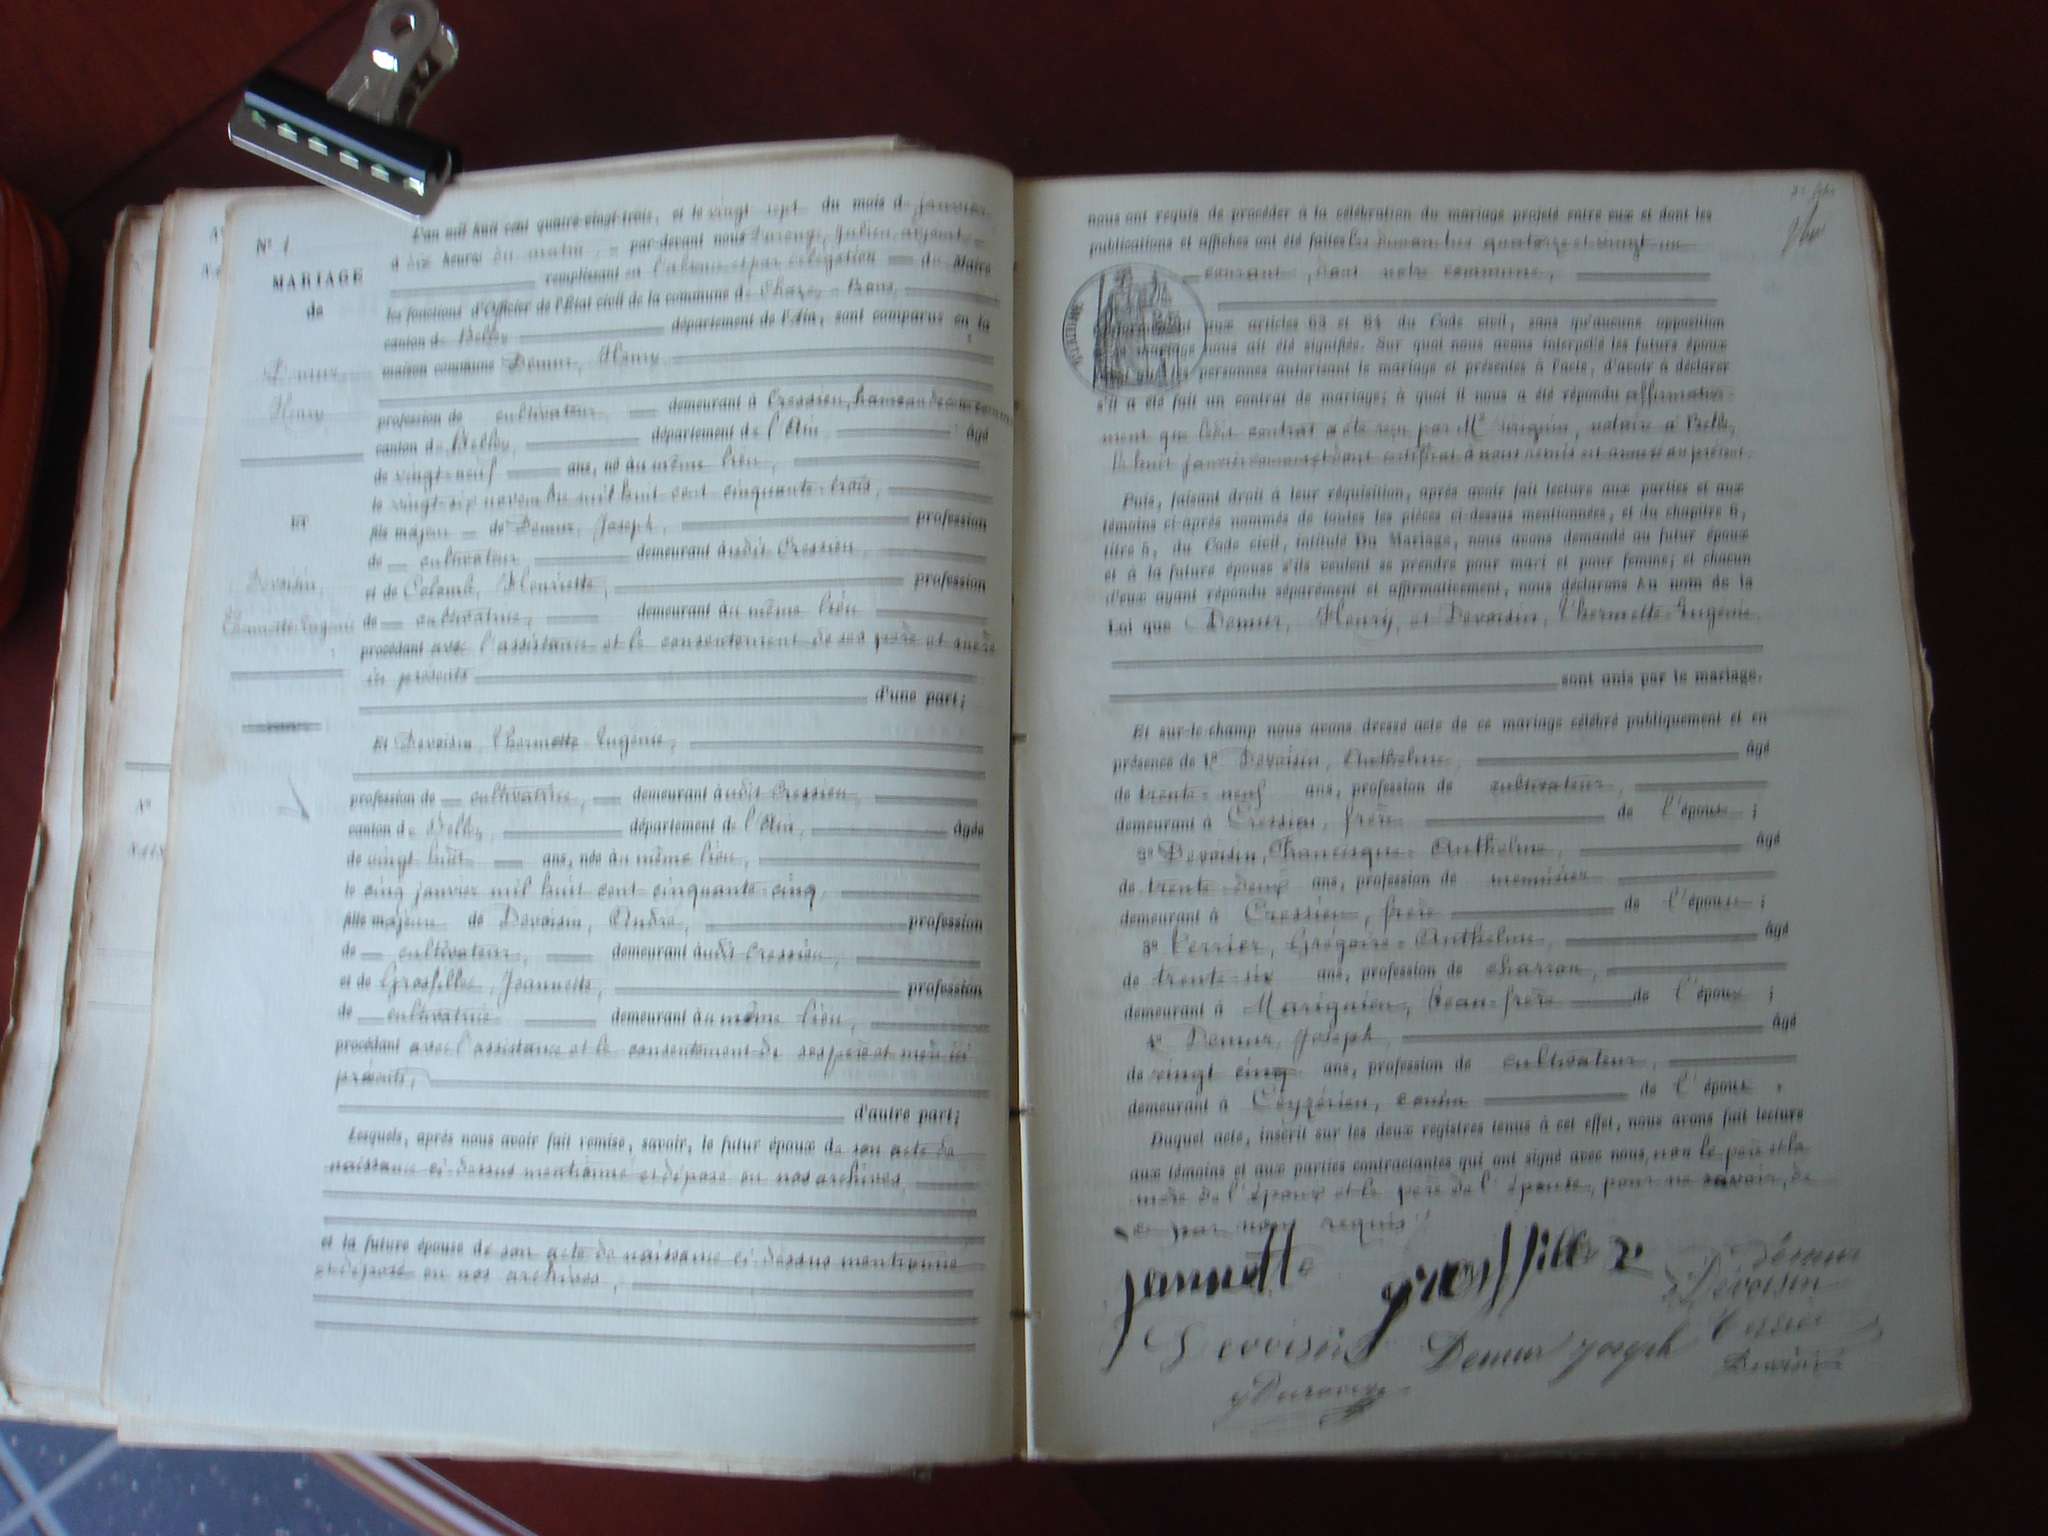 N° 1
MARIAGE
de
Demur,
Henry
ET
Devoisin,
Thermette-Eugénie
L'an mil huit cent quatre-vingt-trois, et le vingt sept du mois de janvier
à dix heures du matin, par-devant nous Julien, adjoint
remplissant en l'absence et par délégation du Maire
les fonctions d'Officier de l'État civil de la commune de Chazey-Bons,
canton de Belley département de l'Ain, sont comparus en la
maison commune Demur, Henry
profession de cultivateur, demeurant à Cressieu, hameau de cette commune
canton de Belley, département de l'Ain, âgé
de vingt-neuf ans, né au même lieu,
le vingt-six novembre mil huit cent cinquante-trois,
fils majeur de Demur, Joseph, profession
de cultivateur demeurant audit Cressieu,
et de Colomb, Henriette, profession
de cultivatrice, demeurant au même lieu
procédant avec l'assistance et le consentement de ses père et mère
ici présents
d'une part;
Et Devoisin, Thermette-Eugénie,
profession de cultivatrice, demeurant audit Cressieu,
canton de Belley, département de l'Ain, âgée
de vingt huit ans, née au même lieu,
le cinq janvier mil huit cent cinquante-cinq,
fille majeure de Devoisin, André, profession
de cultivateur, demeurant audit Cressieu,
et de Grosfillex, Jeannette, profession
de cultivatrice demeurant au même lieu,
procédant avec l'assistance et le consentement de ses père et mère ici
présents,
d'autre part;
Lesquels, après nous avoir fait remise, savoir, le futur époux de son acte de
naissance ci-dessus mentionné et déposé en nos archives,
et la future épouse de son acte de naissance ci-dessus mentionné
et déposé en nos archives,
nous ont requis de procéder à la célébration du mariage projeté entre eux et dont les
publications et affiches ont été faites les dimanches quatorze et vingt un
courant, dans notre commune,
aux articles 63 et 64 du Code civil, sans qu'aucune opposition
mariage nous ait été signifiée. Sur quoi nous avons interpellé les futurs époux
les personnes autorisant le mariage et présentes à l'acte, d'avoir à déclarer
s'il a été fait un contrat de mariage; à quoi il nous a été répondu affirmative-
ment que ledit contrat a été reçu par Me notaire à Belley,
le huit janvier courant dont certificat à nous remis est annexé au présent.
Puis, faisant droit à leur réquisition, après avoir fait lecture aux parties et aux
témoins ci-après nommés de toutes les pièces ci-dessus mentionnées, et du chapitre 6,
titre 5, du Code civil, intitulé Du Mariage, nous avons demandé au futur époux
et à la future épouse s'ils veulent se prendre pour mari et pour femme; et chacun
d'eux ayant répondu séparément et affirmativement, nous déclarons au nom de la
Loi que Demur, Henry, et Devoisin, Thermette-Eugénie
sont unis par le mariage.
Et sur-le-champ nous avons dressé acte de ce mariage célébré publiquement et en
présence de 1° Devoisin, Anthelme, âgé
de trente-neuf ans, profession de cultivateur,
demeurant à Cressieu, frère de l'épouse;
2° Devoisin, Francisque-Anthelme, âgé
de trente-deux ans, profession de menuisier
demeurant à Cressieu, frère de l'épouse;
3° Perrier, Grégoire-Anthelme, âgé
de trente-six ans, profession de charron,
demeurant à Marignieu, beau-frère de l'époux;
4° Demur, Joseph, âgé
de vingt cinq ans, profession de cultivateur,
demeurant à Ceyzérieu, cousin de l'époux.
Duquel acte, inscrit sur les deux registres tenus à cet effet, nous avons fait lecture
aux témoins et aux parties contractantes qui ont signé avec nous, non le père et la
mère de l'époux et le père de l'épouse, pour ne savoir, de
ce par nous requis
jannette grosfillex
Demur
Devoisin
Devoisin
Demur joseph
Devoisin